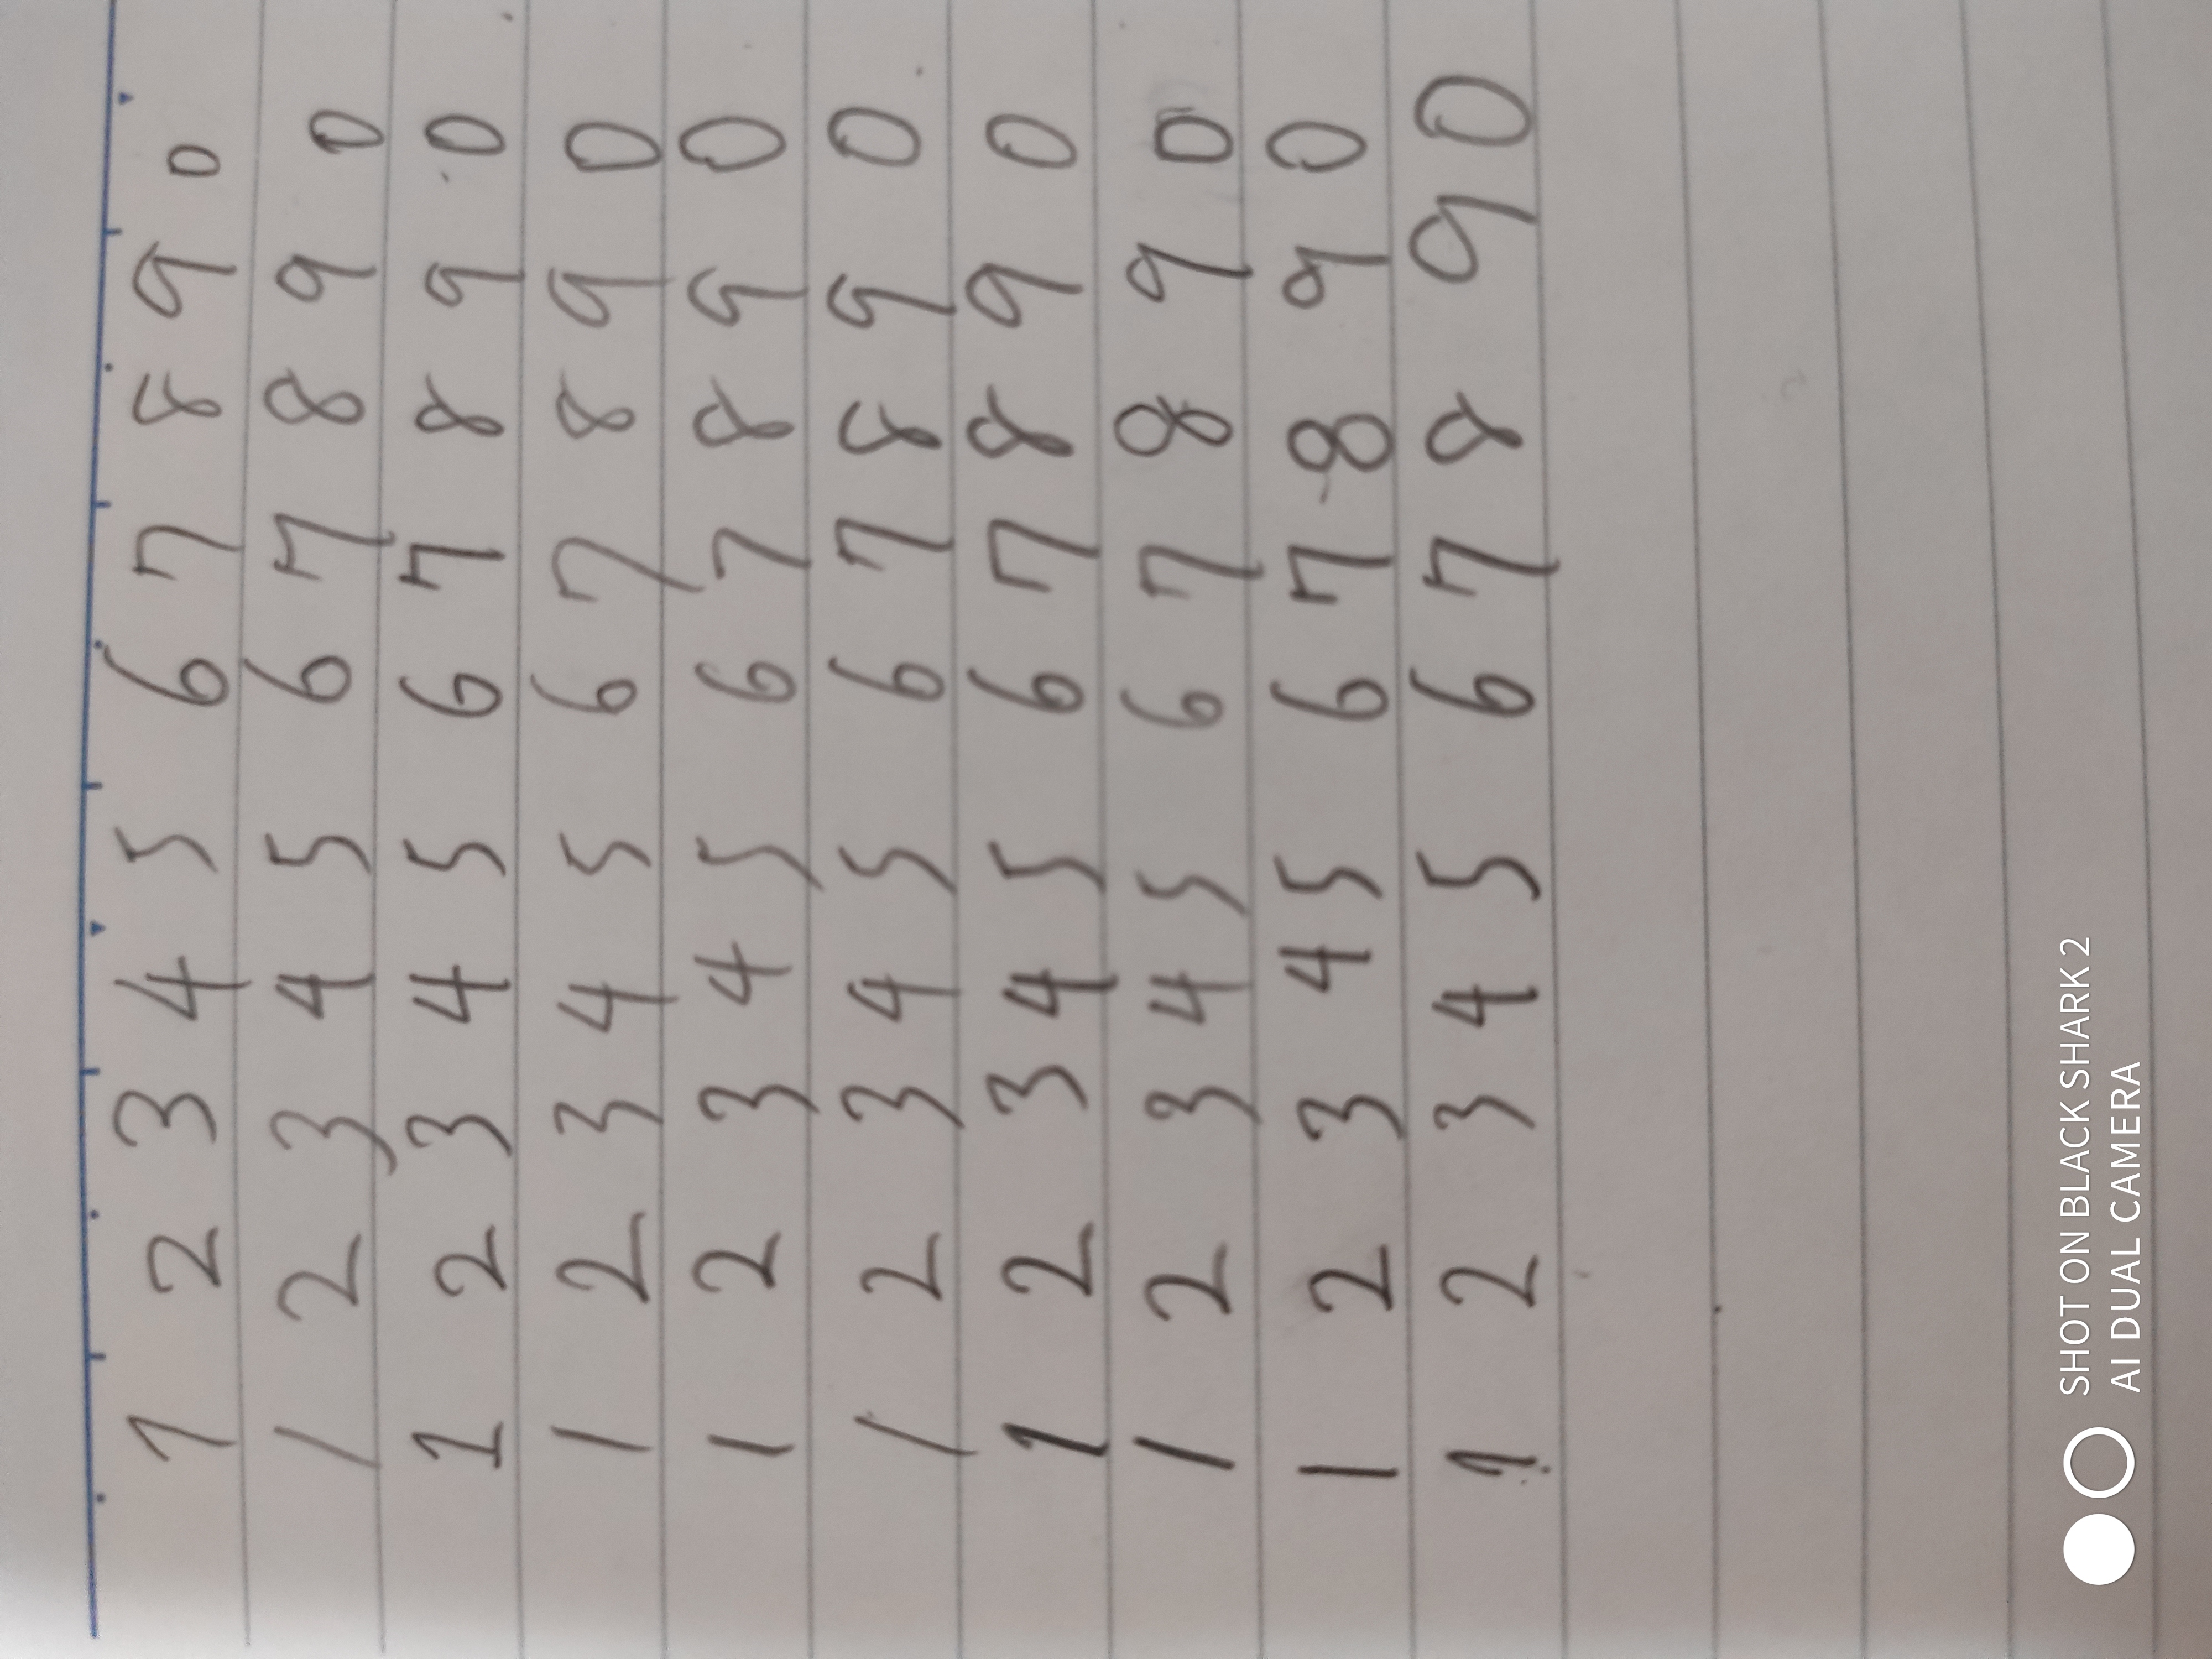 1 2 3 4 5 6 7 8 9 0
1 2 3 4 5 6 7 8 9 0
1 2 3 4 5 6 7 8 9 0
1 2 3 4 5 6 7 8 9 0
1 2 3 4 5 6 7 8 9 0
1 2 3 4 5 6 7 8 9 0
1 2 3 4 5 6 7 8 9 0
1 2 3 4 5 6 7 8 9 0
1 2 3 4 5 6 7 8 9 0
1 2 3 4 5 6 7 8 9 0
SHOT ON BLACK SHARK 2
AI DUAL CAMERA